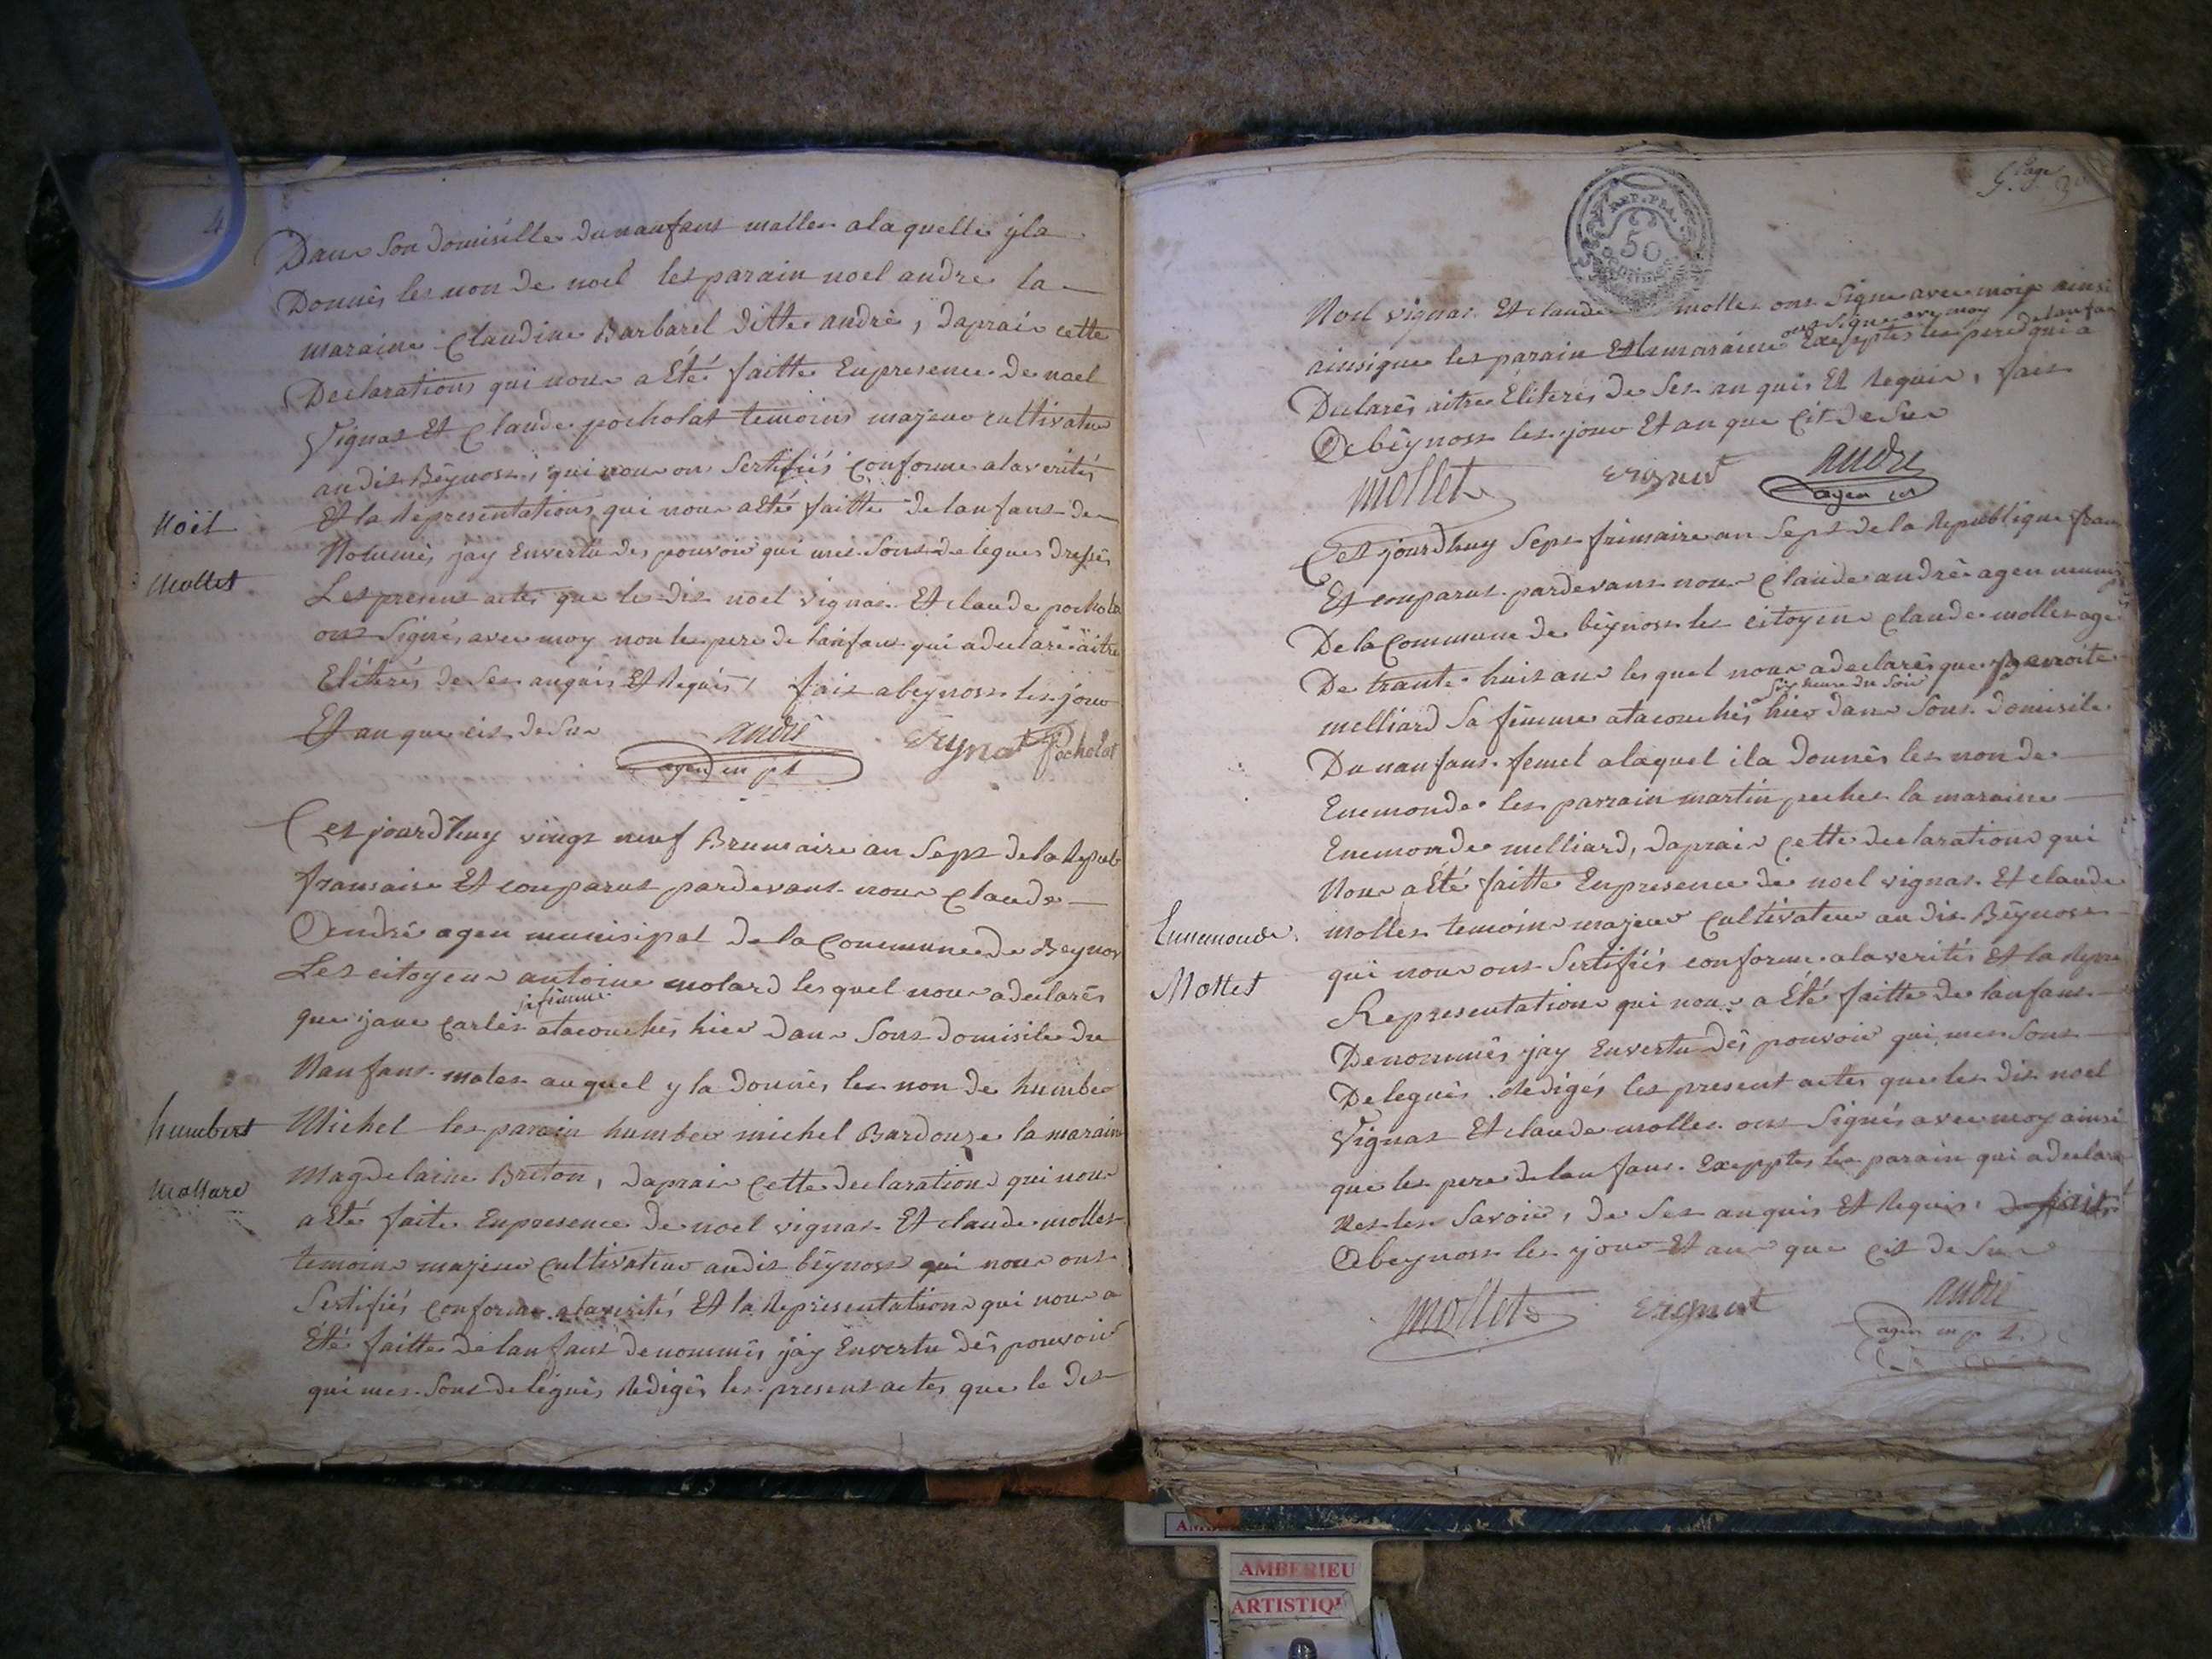 4
Dans Son domisille dunanfant malles alaquelle yla
Donnés les non de noel les parain noel andre la
maraine Claudine Barbarel ditte andrè, daprais cette
Declarations qui nous a Eté faitte Enpresence de noel
Vignat Et Claude pocholat temoins majeur cultivateur
audit Beynost, qui nous on Sertifiés Conforme alaverités
Et la Representations qui nous a Eté faitte de lanfant de
Noël
Nommés, jay Envertu des pouvoir qui mes Sont delegues dressés
Mollet
Les present actes que le dit noel vignat Et claude pochola
ont Signés avec moy non le pere de lanfant qui a declaré aitre
Eliterés de Ses anquis Et Requis, fait abeynost les jour
Et an que cit de Sus
andré
agen m pl
Vignat
Pocholat
Cet jourdhuy vingt neuf Brumaire an Sept de la Repub
fransaise Et conparut pardevant nous Claude
Andrè agen munisipal de la Commune de Beynos
Les citoyens antoine molard lesquel nous a declarés
sa femme
que jane Carles atacouchés hier dans Sont domisile du
Nanfant males auquel yla donnés les non de humber
humbert
Michel les parain humber michel Bardouze la marain
Magdelaine Breton, daprais Cette declarations qui nous
Mollard
a Eté faite Enpresence de noel vignat Et claude molles
temoins majeur Cultivateur audit beynost qui nous ont
Sertifiés conforme alaverités Et la Representations qui nous a
Eté faitte de lanfant denommés jay Envertu des pouvoir
qui mes Sont delégués Redigés les present actes que le dit
5 Page
REP. FRA.
50
CENTIMES
Noel vignat Et claude molles ont Signe avec moy ainsi
ont Signe avec moy de lanfan
ainsi que les parain Et la maraine Exseptés les pere qui a
Declarés aitre Eliterés de Ses anquis Et Requis, fait
A beynost les jour Et an que Cit de Sus
mollet
vignat
andre
agen
Cet jourdhuy Sept frimaire an Sept de la Republique fran
Et conparut pardevant nous Claude andrè agen munis
De la Commune de beynost les citoyens claude molles age
De trante huit ans les quel nous a declarés que
Six heure du Soir
melliard Sa femme atacouchés hier dans Sont domisile
Du nanfant femel alaquel ila donnés les non de
Enemonde les parrain martin peches la maraine
Enemonde melliard, daprais Cette declarations qui
Nous a Eté faitte Enpresence de noel vignat Et claude
Ennemonde
molles temoins majeur Cultivateur audit Beynost
qui nous ont Sertifiés conforme alaverités Et la Repre
Mollet
Representations qui nous a Eté faitte de lanfant
Denommés jay Envertu dés pouvoir qui mes Sont
Delegués Redigés les present actes que les dit noel
Vignat Et claude molles ont Signés avec moy ainsi
que les pere de lanfant Exepptes les parain qui a declare
Nes les Savoir, de Ses anquis Et Requis, fait
A beynost les jour Et an que cit de Sus
mollet
vignat
andré
agen m pl
AMBERIEU
ARTISTIQ